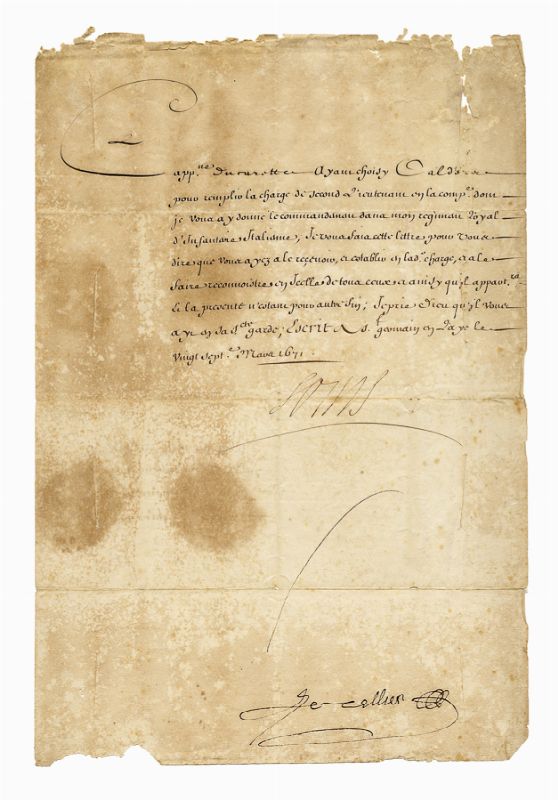 Cappne Ducarette Ayant choisy Caldora
pour remplir la charge de second Lieutenant en la compe dont
je vous ay donné le commandement dans mon Regiment Royal
d'Infanterie Italienne, Je vous fais cette lettre pour vous
dire que vous ayez a le recevoir, et establir en lade charge, et a le
faire reconnoistre en Icelle de tous ceux et ainsy qu'il appartra.
Et la presente n'estant pour autre fin; Je prie Dieu qu'il vous
ayt en sa ste garde; Escrit a St. germain en Laye le
vingt septe. Mars 1671
Louis
Le Tellier